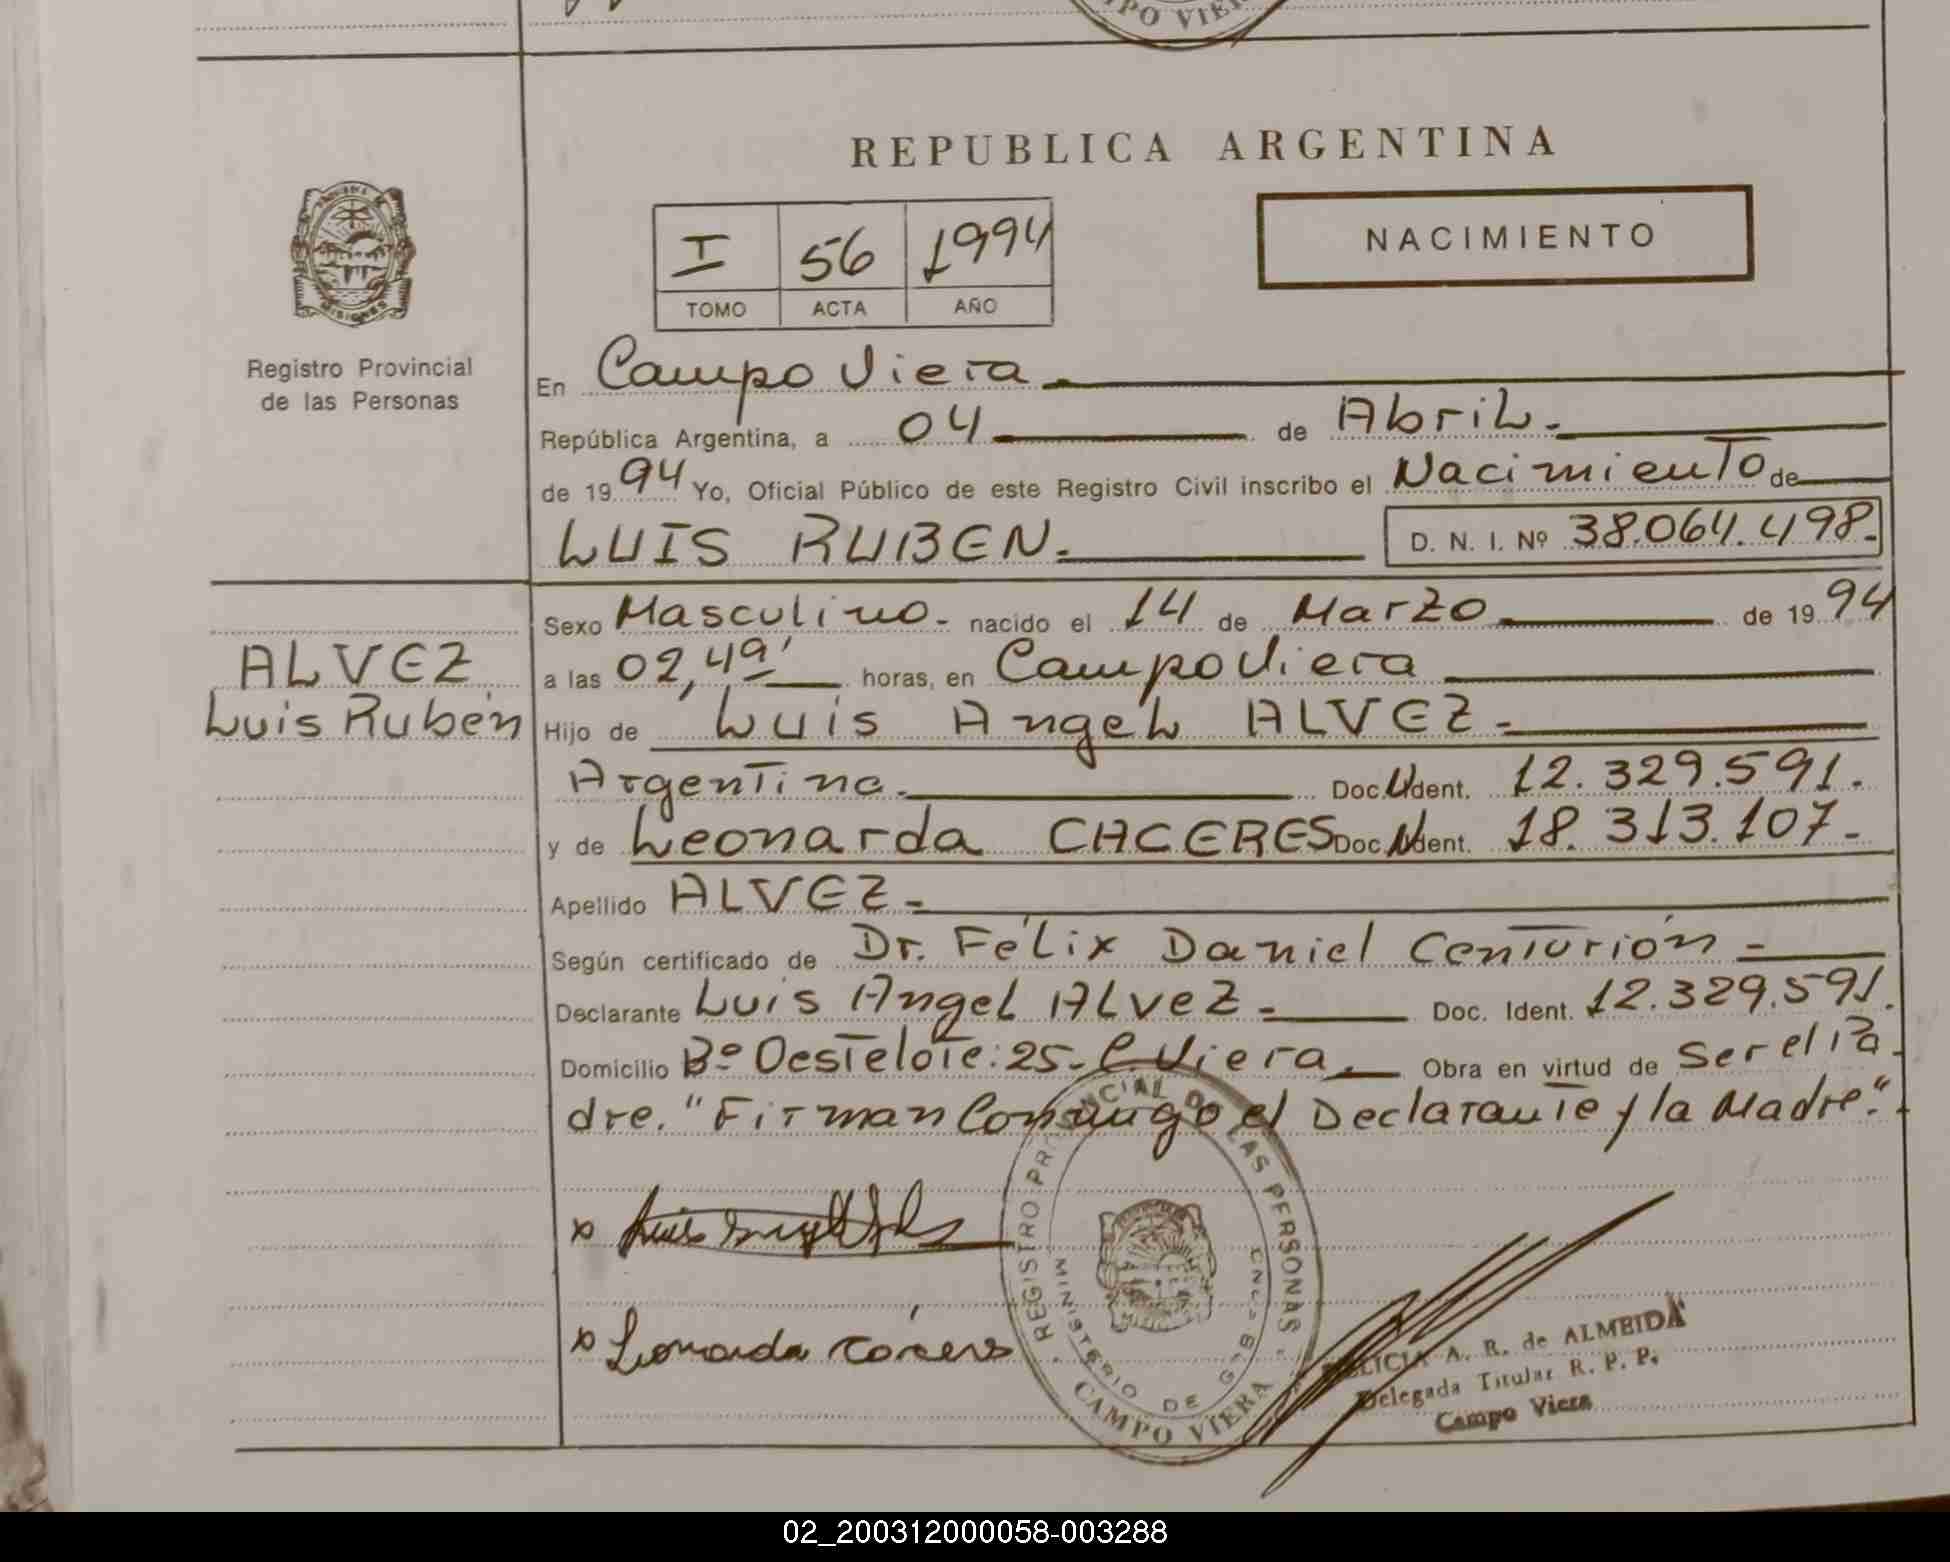 CAMPO VIERA
REPUBLICA ARGENTINA
MISIONES
I 56 1994
TOMO ACTA AÑO
NACIMIENTO
Registro Provincial
de las Personas
En Campo Viera
República Argentina, a 04 de Abril.
de 1994 Yo, Oficial Público de este Registro Civil inscribo el Nacimiento de
LUIS RUBEN. D. N. I. Nº 38.064.498.
Sexo Masculino. nacido el 14 de Marzo de 1994
ALVEZ
Luis Rubén
a las 02,49' horas, en Campo Viera
Hijo de Luis Angel ALVEZ.
Argentina. Doc. Ident. 12.329.591.
y de Leonarda CACERES Doc. Ident. 18.313.107.
Apellido ALVEZ.
Según certificado de Dr. Félix Daniel Centurión
Declarante Luis Angel ALVEZ. Doc. Ident. 12.329.591.
Domicilio Bº Oeste lote: 25. C. Viera Obra en virtud de Ser el Pa
dre. "Firman Conmigo el Declarante y la Madre".
REGISTRO PROVINCIAL DE LAS PERSONAS
MINISTERIO DE GOB
CAMPO VIERA
x Luis Angel
x Leonarda Cáceres
A. R. de ALMEIDA
Delegada Titular R. P. P.
Campo Viera
02_200312000058-003288